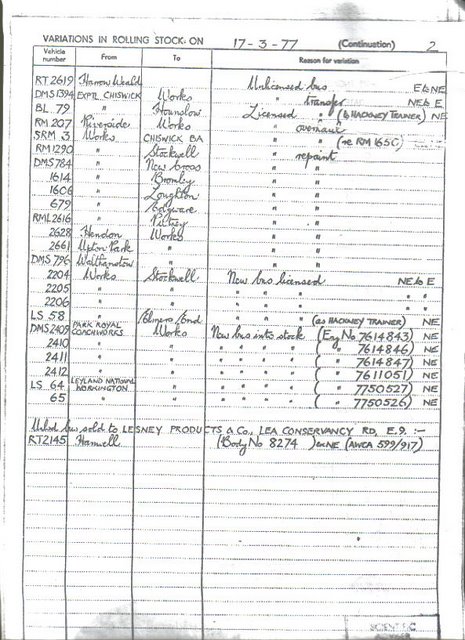 VARIATIONS IN ROLLING STOCK: ON 17-3-77 (Continuation) 2
Vehicle number From To Reason for variation
RT 2619 Harrow Weald Unlicensed bus E to NE
DMS 1394 EXPTL CHISWICK Works " transfer NE to E
BL 79 " Hounslow Licensed " (to HACKNEY TRAINER) NE
RM 207 Riverside Works " overhaul
SRM 3 Works CHISWICK BA " " (re RM 1650)
RM 1290 " Stockwell " repaint
DMS 784 " New Cross " "
1614 " Bromley " "
1606 " Loughton " "
679 " Edgware " "
RML 2616 " Putney " "
2628 Hendon Works " "
2661 Upton Park " " "
DMS 796 Walthamstow " " "
2204 Works Stockwell New bus licensed NE to E
2205 " " " " " " "
2206 " " " " " " "
LS 58 " Elmers End " " " (as HACKNEY TRAINER) NE
DMS 2409 PARK ROYAL COACHWORKS Works New bus into stock (Eng No 7614843) NE
2410 " " " " " " ( " 7614846) NE
2411 " " " " " " ( " 7614847) NE
2412 " " " " " " ( " 7611051) NE
LS 64 LEYLAND NATIONAL WORKINGTON " " " " " ( " 7750527) NE
65 " " " " " " ( " 7750526) NE
Unlicd bus sold to LESNEY PRODUCTS & Co., LEA CONSERVANCY RD, E.9. :-
RT2145 Hanwell (Body No 8274 ) NE (AWCA 599/917)